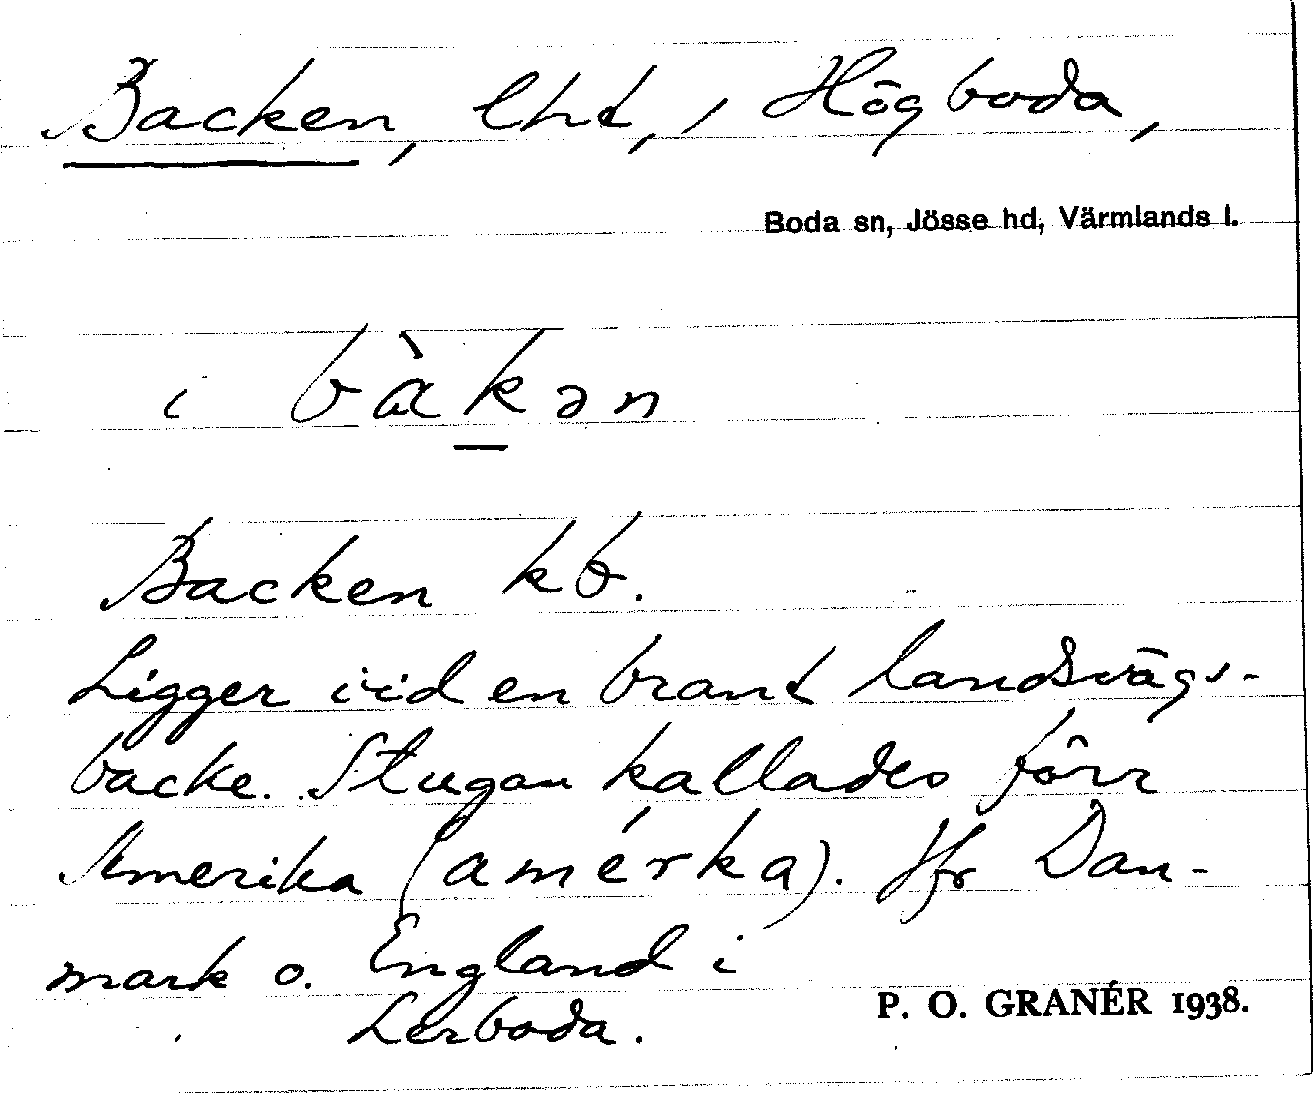 Backen, lht, i Högboda,
Boda sn, Jösse hd, Värmlands l.
i bàkən
Backen kb.
Ligger vid en brant landsvägs-
backe. Stugan kallades förr
Amerika (amérka). Jfr Dan-
mark o. England i
Lerboda.
P. O. GRANÉR 1938.